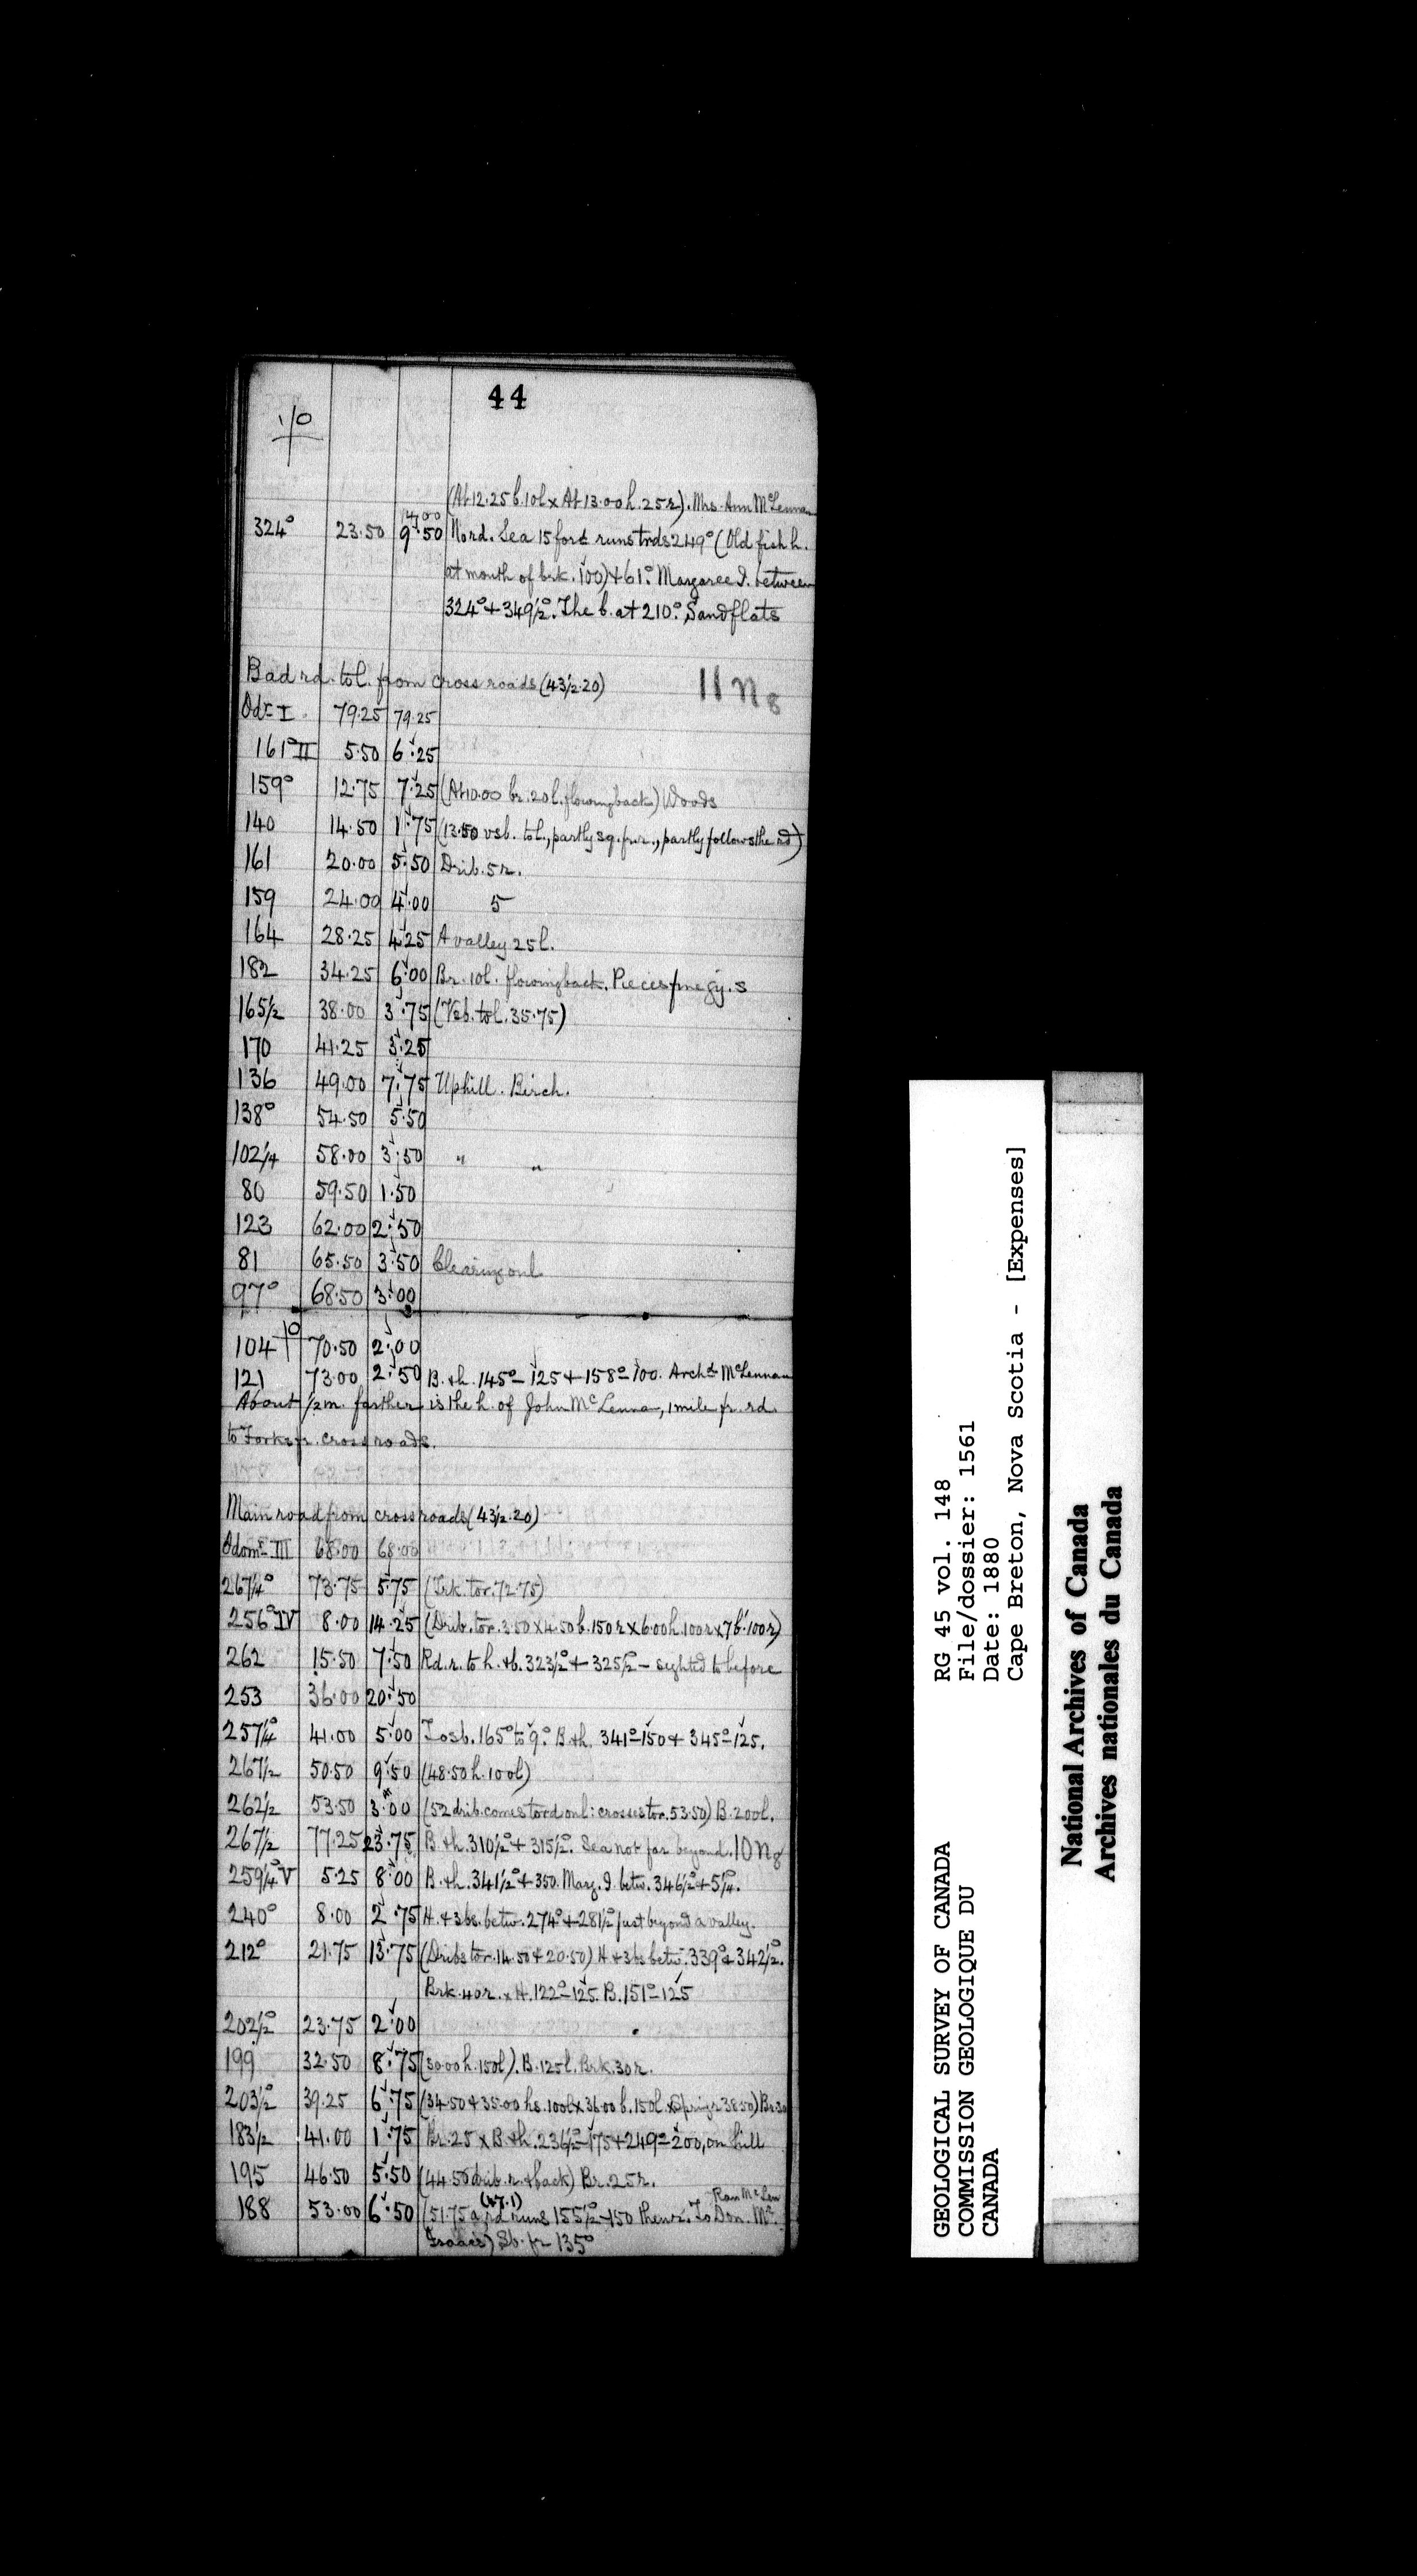 44
10
(At 12.25 b. 10 l x At 13.00 h. 25 r). Mrs. Ann McLennan
14.00
324° 23.50 9.50 No rd. Sea 15 for & runs trds 249° (Old fish h.
at mouth of brk. 100) + 61°. Margaree I. between
324° + 349½°. The b. at 210°. Sandflats
Bad rd. to l. from cross roads (43½.20) 11 N 8
Odr I 79.25 79.25
161° II 5.50 6.25
159° 12.75 7.25 (At 10.00 br. 20 l. flowing back) Woods
140 14.50 1.75 (13.50 vsb. to l., partly sq. fr r., partly follows the rd)
161 20.00 5.50 Drib. 5 r.
159 24.00 4.00 5
164 28.25 4.25 A valley 25 l.
182 34.25 6.00 Br. 10 l. flowing back. Pieces
165½ 38.00 3.75 (Vsb. to l. 35.75)
170 41.25 3.25
136 49.00 7.75 Uphill. Birch.
138° 54.50 5.50
102¼ 58.00 3.50 " "
80 59.50 1.50
123 62.00 2.50
81 65.50 3.50 Clearing on l.
97° 68.50 3.00
10
104 70.50 2.00
121 73.00 2.50 B. + h. 145° – 125 + 158° – 100. Archd McLennan
About ½ m. farther is the h. of John McLennan, 1 mile fr. rd.
to Forks fr. cross roads.
Main road from cross roads (43½.20)
Odomr III 68.00 68.00
267¼° 73.75 5.75 (Brk. to r. 72.75)
256° IV 8.00 14.25 (Drib. to r. 3.50 x 4.50 b. 150 r x 6.00 h. 100 r x 7 b. 100 r)
262 15.50 7.50 Rd. r. to h. + b. 323½° + 325½° – sighted to before
253 36.00 20.50
257¼° 41.00 5.00 Losb. 165° to 9°. B + h. 341° – 150 + 345° – 125.
267½ 50.50 9.50 (48.50 h. 100 l)
262½ 53.50 3.00 (52 drib. comes to rd on l: crosses to r. 53.50) B. 200 l.
267½ 77.25 23.75 B + h. 310½° + 315½°. Sea not far beyond. 10 N 8
259¼° V 5.25 8.00 B. + h. 341½° + 350. Marg. I. betw. 346½° + 5¼°.
240° 8.00 2.75 H. + 3 bs. betw. 274° + 281½° just beyond a valley.
212° 21.75 13.75 (Dribs to r. 14.50 + 20.50) H + 3 bs betw. 339° + 342½°.
Brk. 40 r. x H. 122° – 125. B. 151° – 125
202½° 23.75 2.00
199 32.50 8.75 (30.00 h. 150 l). B. 125 l. Brk. 30 r.
203½° 39.25 6.75 (34.50 + 35.00 hs. 100 l x 36.00 b. 150 l x Spring r 38.50) Br. 30
183½ 41.00 1.75 Br. 25 x B. + h. 236½° – 175 + 249° – 200, on hill
195 46.50 5.50 (44.50 drib. r. + back) Br. 25 r.
188 53.00 6.50 (51.75 a rd runs 155½° – 150 thence. To Don. Mc
Isaacs) Sb. fr 135°
RG 45 vol. 148
File/dossier: 1561
Date: 1880
Cape Breton, Nova Scotia - [Expenses]
GEOLOGICAL SURVEY OF CANADA
COMMISSION GEOLOGIQUE DU
CANADA
National Archives of Canada
Archives nationales du Canada